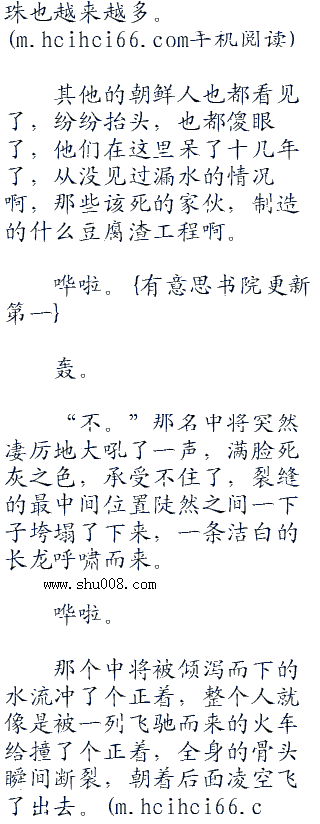 珠也越来越多。
(m.hcihci66.com手机阅读)
其他的朝鲜人也都看见
了，纷纷抬头，也都傻眼
了，他们在这里呆了十几年
了，从没见过漏水的情况
啊，那些该死的家伙，制造
的什么豆腐渣工程啊。
哗啦。{有意思书院更新
第一}
轰。
“不。”那名中将突然
凄厉地大吼了一声，满脸死
灰之色，承受不住了，裂缝
的最中间位置陡然之间一下
子垮塌了下来，一条洁白的
长龙呼啸而来。
www.shu008.com
哗啦。
那个中将被倾泻而下的
水流冲了个正着，整个人就
像是被一列飞驰而来的火车
给撞了个正着，全身的骨头
瞬间断裂，朝着后面凌空飞
了出去。(m.hcihci66.c